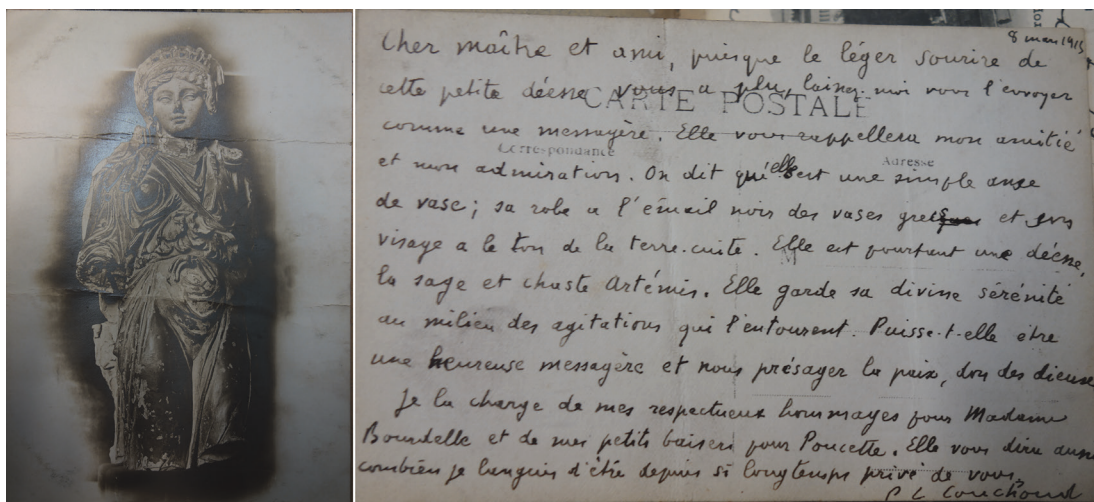 8 mars 1915
Cher maître et ami, puisque le léger sourire de
cette petite déesse vous a plu, laissez-moi vous l'envoyer
CARTE POSTALE
comme une messagère. Elle vous rappellera mon amitié
Correspondance
Adresse
et mon admiration. On dit qu'elle est une simple anse
de vase ; sa robe a l'émail noir des vases grecs et son
visage a le ton de la terre-cuite. Elle est pourtant une déesse,
M
la sage et chaste Artémis. Elle garde sa divine sérénité
au milieu des agitations qui l'entourent. Puisse-t-elle être
une heureuse messagère et nous présager la paix, don des dieux
Je la charge de mes respectueux hommages pour Madame
Bourdelle et de mes petits baisers pour Poucette. Elle vous dira aussi
combien je languis d'être depuis si longtemps privé de vous.
P L Couchoud